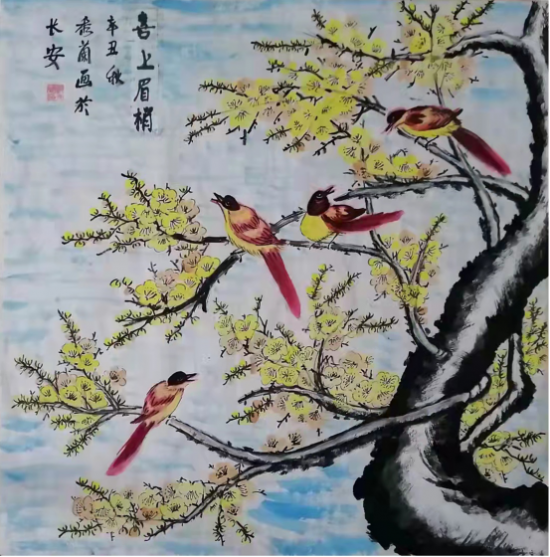 喜上眉梢
辛丑秋
秀兰画於
长安